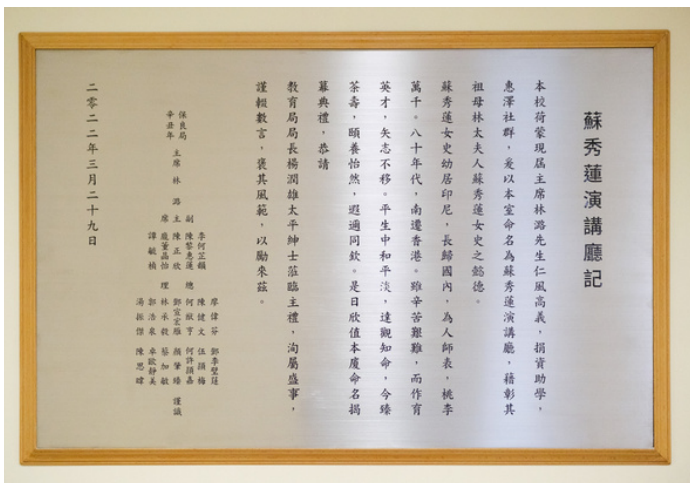 蘇秀蓮演講廳記
本校荷蒙現屆主席林潞先生仁風高義，捐資助學，
惠澤社群，爰以本室命名為蘇秀蓮演講廳，藉彰其
祖母林太夫人蘇秀蓮女史之懿德。
蘇秀蓮女史幼居印尼，長歸國內，為人師表，桃李
萬千。八十年代，南遷香港。雖辛苦艱難，而作育
英才，矢志不移。平生中和平淡，達觀知命，今臻
荼壽，頤養怡然，遐邇同欽。是日欣值本廈命名揭
幕典禮，恭請
教育局局長楊潤雄太平紳士蒞臨主禮，洵屬盛事，
謹輟數言，褒其風範，以勵來茲。
保良局
辛丑年
主席 林潞
副主席
李何芷韻
陳黎惠蓮
陳正欣
龐董晶怡
譚毓楨
總理
廖偉芬
陳健文
何猷亨
鄧宣宏雁
林承毅
郭浩泉
湯振傑
鄧李堅莲
伍頴梅
何許頴嘉
顏肇臻
蔡加敏
卓歐靜美
陳思暐
謹識
二零二二年三月二十九日